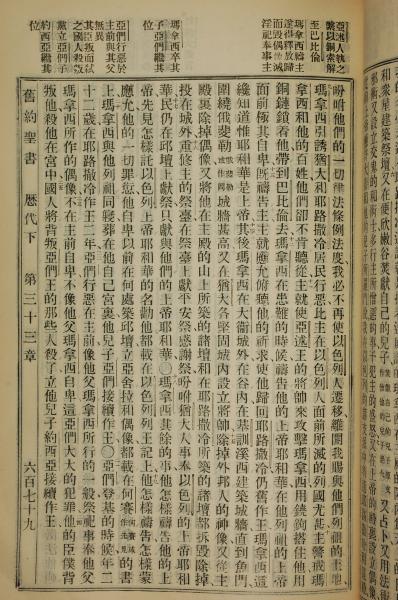 和衆星建築祭壇又在便欣嫩谷焚獻自己的兒子又占卜又用法術
亞述人執之
繫以銅索解
至巴比倫
瑪拿西禱主
遂得釋放歸
而毀偶像滅
淫祀奉事主
瑪拿西卒其
子亞們繼其
位
亞們行惡於
主前與其父
無異
其臣叛而弒
之國人殺叛
黨立亞們子
約西亞繼其
位
吩咐他們的一切律法條例法度我必不再使以色列人遷移離開我賜與他們列祖的土地
瑪拿西引誘猶大和耶路撒冷居民行惡比主在以色列人面前所滅的列國尤甚主警戒瑪
拿西和他的百姓他們卻不肯聽從主就使亞述王的將帥來攻擊瑪拿西用鐃鉤搭住他用
銅鏈鎖着他帶到巴比倫去瑪拿西在患難的時候禱告他的上帝耶和華在他列祖的上帝
面前極其自卑既禱告主主就應允俯聽他的祈求使他歸回耶路撒冷仍舊作王瑪拿西這
纔知道惟耶和華是上帝其後瑪拿西在大衛城外在谷內在基訓溪西建築城牆直到魚門
圍繞俄斐勒城牆甚高又在猶大各堅固城內設立將帥除掉外邦人的神像又從主
殿裏除掉偶像又將他在主殿的山上所築的諸壇和耶路撒冷所築的諸壇都拆毀除掉
投在城外重修主的祭臺在祭臺上獻平安祭感謝祭吩咐猶大人事奉以色列的上帝耶和
華民仍在邱壇上獻祭只獻與他們的上帝耶和華〇瑪拿西其餘的事他怎樣禱告他的上
帝先見怎樣託以色列上帝耶和華的名勸他都載在以色列王記上他怎樣禱告怎樣蒙
應允他的一切罪愆他自卑以前在何處築邱壇立亞舍拉和偶像都載在何賽的書
上瑪拿西與他列祖同寢葬在他自己宮裏他兒子亞們接續作王〇亞們登基的時候年二
十二歲在耶路撒冷作王二年亞們行惡在主前像他父瑪拿西所行的一般祭祀事奉他父
瑪拿西所作的偶像不在主前自卑不像他父瑪拿西自卑這亞們大大的犯罪他的臣僕背
叛他殺他在宮中國人將背叛亞們王的那些人殺了立他兒子約西亞接續作王
舊約聖書 歷代下 第三十三章 六百七十九